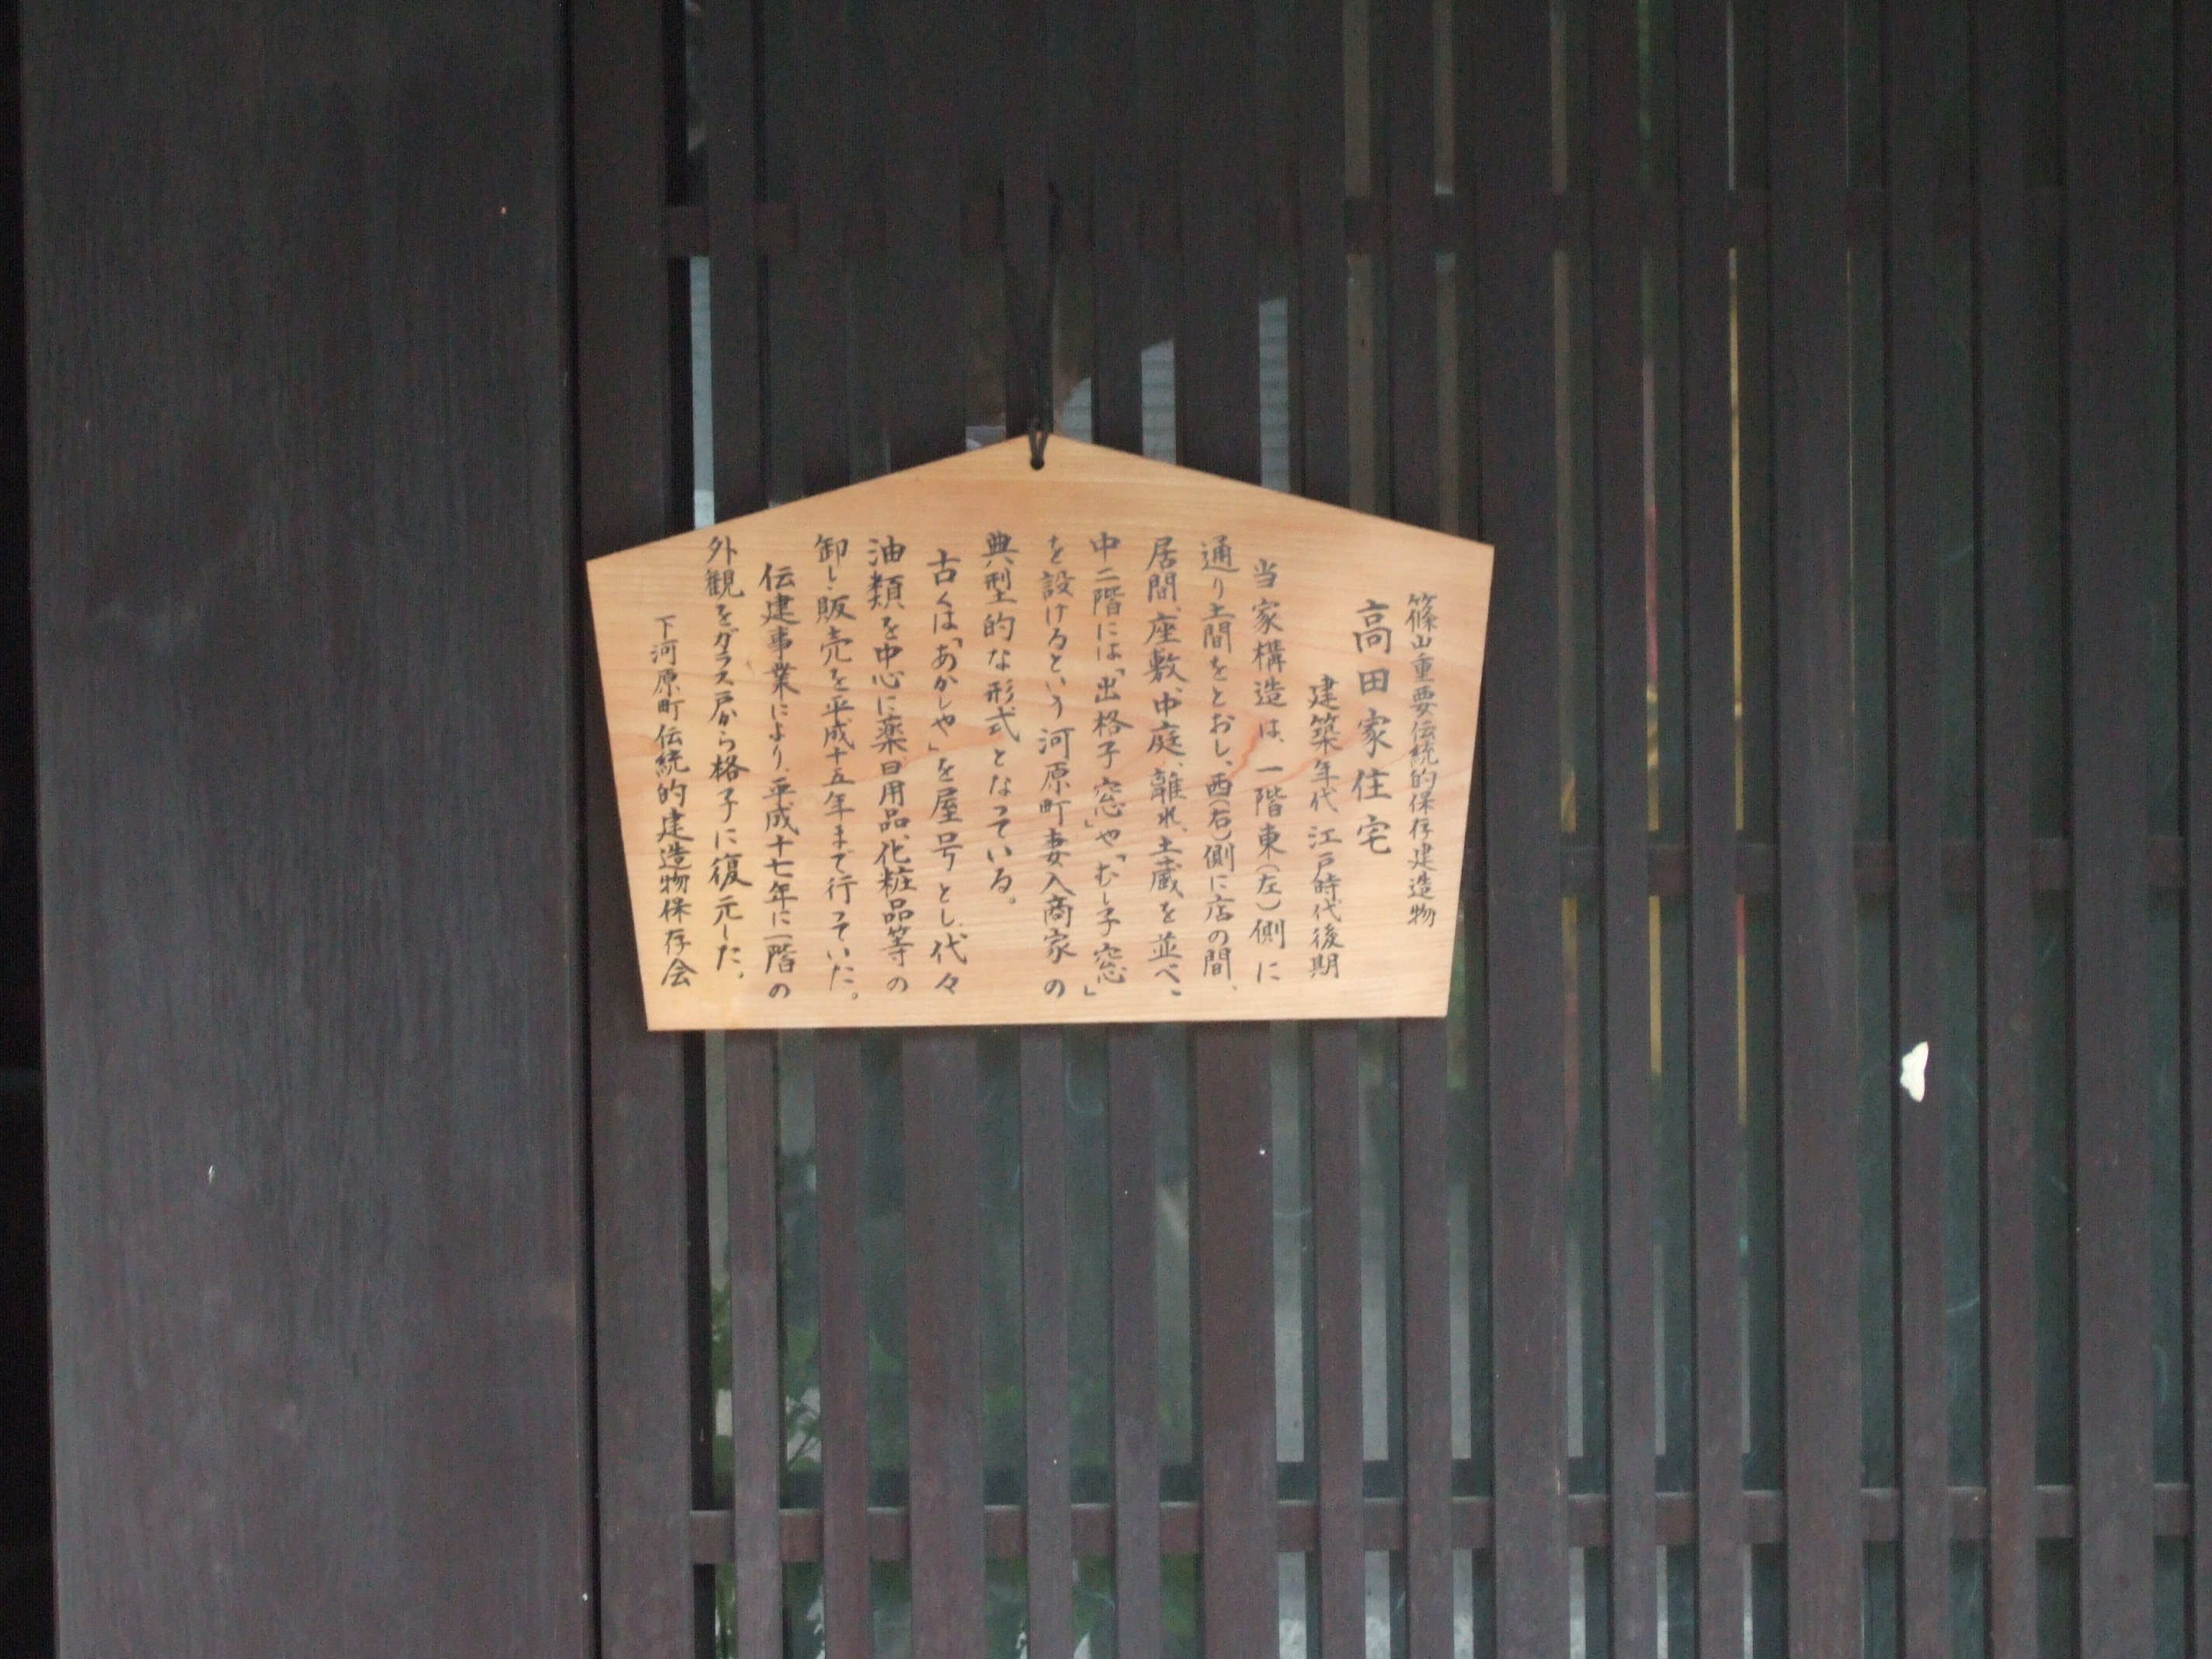 篠山重要伝統的保存建造物
高田家住宅
建築年代 江戸時代後期
当家構造は、一階東(左)側に
通り土間をとおし、西(右)側に店の間、
居間、座敷、中庭、離れ、土蔵を並べ、
中二階には「出格子窓」や「むし子窓」
を設けるという河原町妻入商家の
典型的な形式となっている。
古くは「あかしや」を屋号とし、代々
油類を中心に薬、日用品、化粧品等の
卸し・販売を平成十五年まで行っていた。
伝建事業により、平成十七年に一階の
外観をガラス戸から格子に復元した。
下河原町伝統的建造物保存会